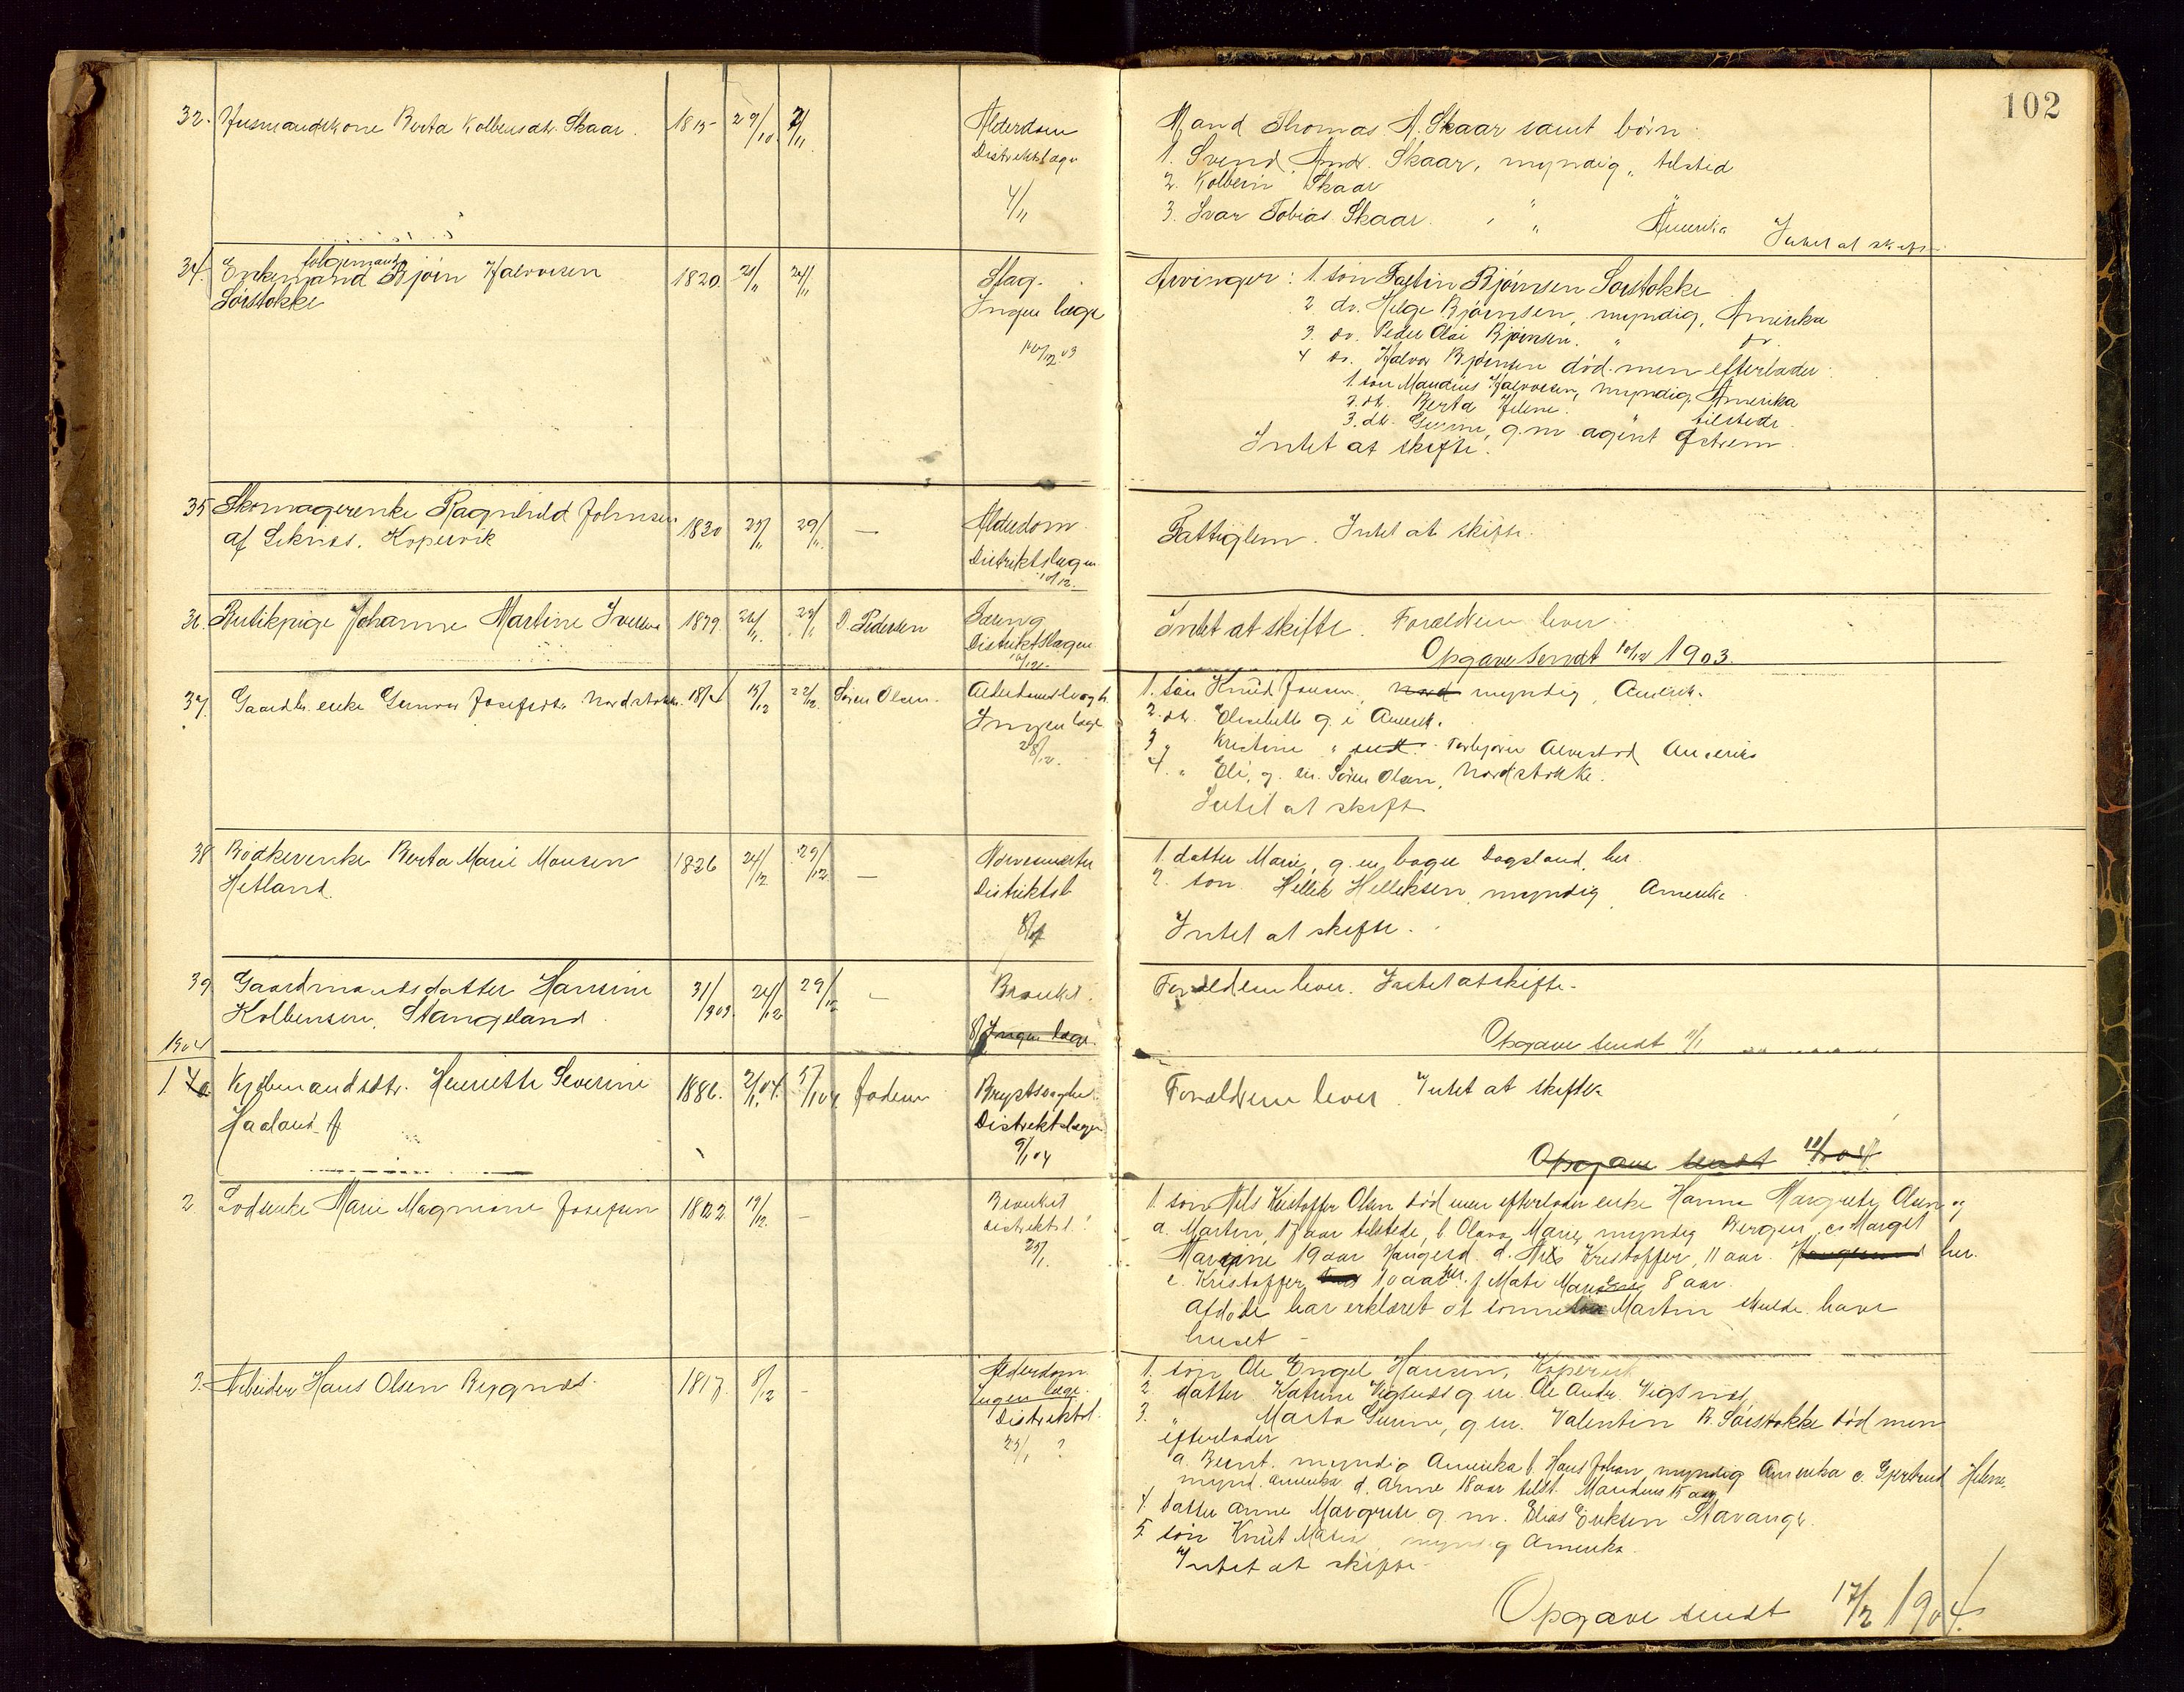 102
32. Husmandskone Berta Kolbensdtr. Skaar. 1815 29/10 2/11 Alderdom
Distriktslæge
4/11
Mand Thomas A. Skaar samt børn
1. Svend Andr. Skaar, myndig, tilsted
2. Kolbein Skaar
3. Ivar Tobias Skaar. " " Amerika Intet at skifte
34. Enkemand folgemand Bjørn Halvorsen 1820. 21/11 24/11 Slag.
Sørstokke
Ingen læge
10/12 03
Arvinger: 1. søn Fæltin Bjørnsen Sørstokke
2 do. Helge Bjørnsen, myndig, Amerika
3. do. Peder Olai Bjørnsen. " do.
4 do. Halvor Bjørnsen død men efterlader
1. søn Maudius Halvorsen, myndig, Amerika
2. dtr. Berta Helene. " tilstede
3. dtr. Gurine, g.m. agent Østrem
Intet at skifte.
35 Skomagerenke Ragnhild Johnsen 1830 25/11 29/11 — Alderdom
af Seknes. Kopervik
Distriktslægen
10/12.
Fattiglem. Intet at skifte.
36. Butikpige Johanne Martine Iversen 1879. 26/11 29/11 O. Pedersen Tæring
Distriktslægen
10/12.
Intet at skifte. Forældrene lever.
Opgave sendt 10/12 1903.
37. Gaardbr. enke Gunvor Josefsdtr. Nordstokke. 13/12 22/12 Søren Olsen. Alderdomssvagh.
Ingen læge
28/12.
1. søn Knud Jonsen, myndig, Amerik.
2. dtr. Elisabeth g. i Amerik.
3 " Kristine " Torbjørn Alvestad Amerika
4. " Eli, g. m. Søren Olsen, Nordstokke.
Intet at skifte
38 Bødkerenke Berta Marie Monsen 1826 24/12 29/12 — Distriktsl
Hetland.
1. datter Marie, g. m. bager Dagsland, her.
2. søn Hellik Helliksen, myndig, Amerika
Intet at skifte.
39 Gaardmandsdatter Hansine 31/1 903. 24/12 29/12 — Bronkit.
Kolbensen, Stangeland
Ingen læge.
Forældrene lever. Intet at skifte.
Opgave sendt 11/1
1904
1. Kjøbmandsdtr. Henriette Severine 1886. 2/1 04. 5/1 04. faderen Brystsygdom.
Haaland
Distriktslægen
9/1 04
Forældrene lever. Intet at skifte
Opgave sendt 11/1 04
2. Lodsenke Marie Magnine Josefsen 1822 19/12. — Bronkit
distriktsl.?
25/1.
1. søn Nils Kristoffer Olsen død men efterlader enke Hanna Margrete Olsen og
a. Martin, 17 aar tilstede, b Olava Marie, myndig Bergen, c. Margit
Marine 19 aar Haugesd. d. Nils Kristoffer, 11 aar. her.
e. Kristoffer 10 aar her. f Mate 8 aar.
Afdøde har erklæret at Martin skulde have
huset —
3. Arbeider Hans Olsen Rygnes. 1817. 8/12 — Alderdom
Ingen læge.
Distriktsl.
25/1 ?
1. søn Ole Engel Hansen, Kopervik
2 datter Katrine Vigsnes g m. Ole Andr. Vigsnes,
3. " Marta Gurine, g. m. Valentin B. Sørstokke død men
efterlader
a. Bernt. myndig Amerika b. Hans Johan, myndig Amerika c. Gjertrud Helene,
mynd. Amerika d. Anne 18 aar tilst. Maudius 15 aar
4. datter Anne Margrete g. m. Elias Eriksen Stavanger.
5. søn Knut myndig Amerika.
Intet at skifte
Opgave sendt 17/2 1904.